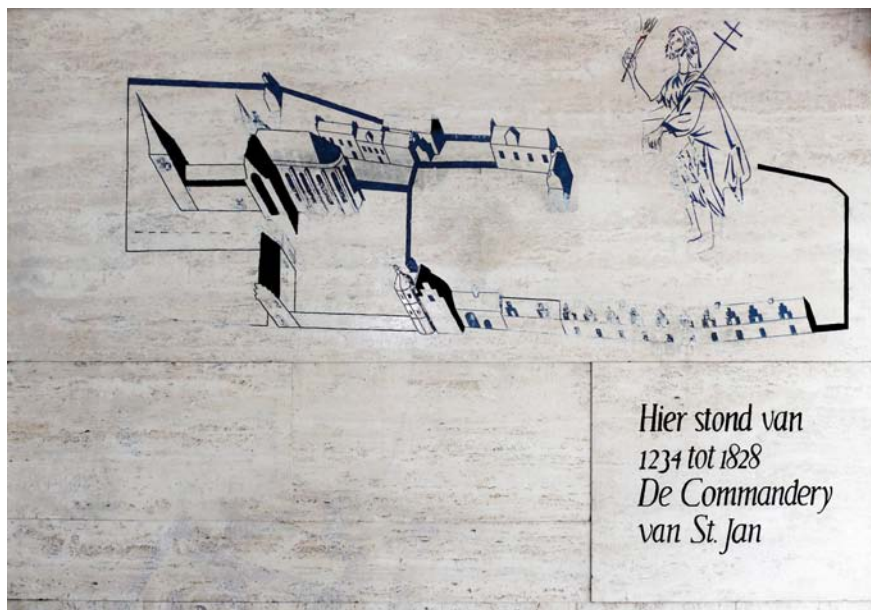 Hier stond van
1234 tot 1828
De Commandery
van St. Jan